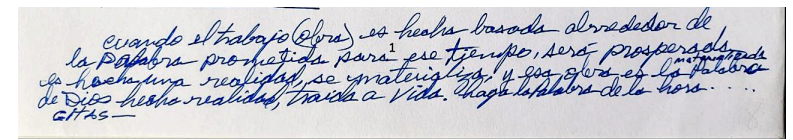 cuando el trabajo (obra) es hecha basada alrededor de
la Palabra prometida para ese tiempo, será prosperada,
es hecha una realidad, se materializa, y esa obra es la Palabra materializada
de Dios hecha realidad, traida a Vida. haga la Palabra de la hora.....
GHAS—